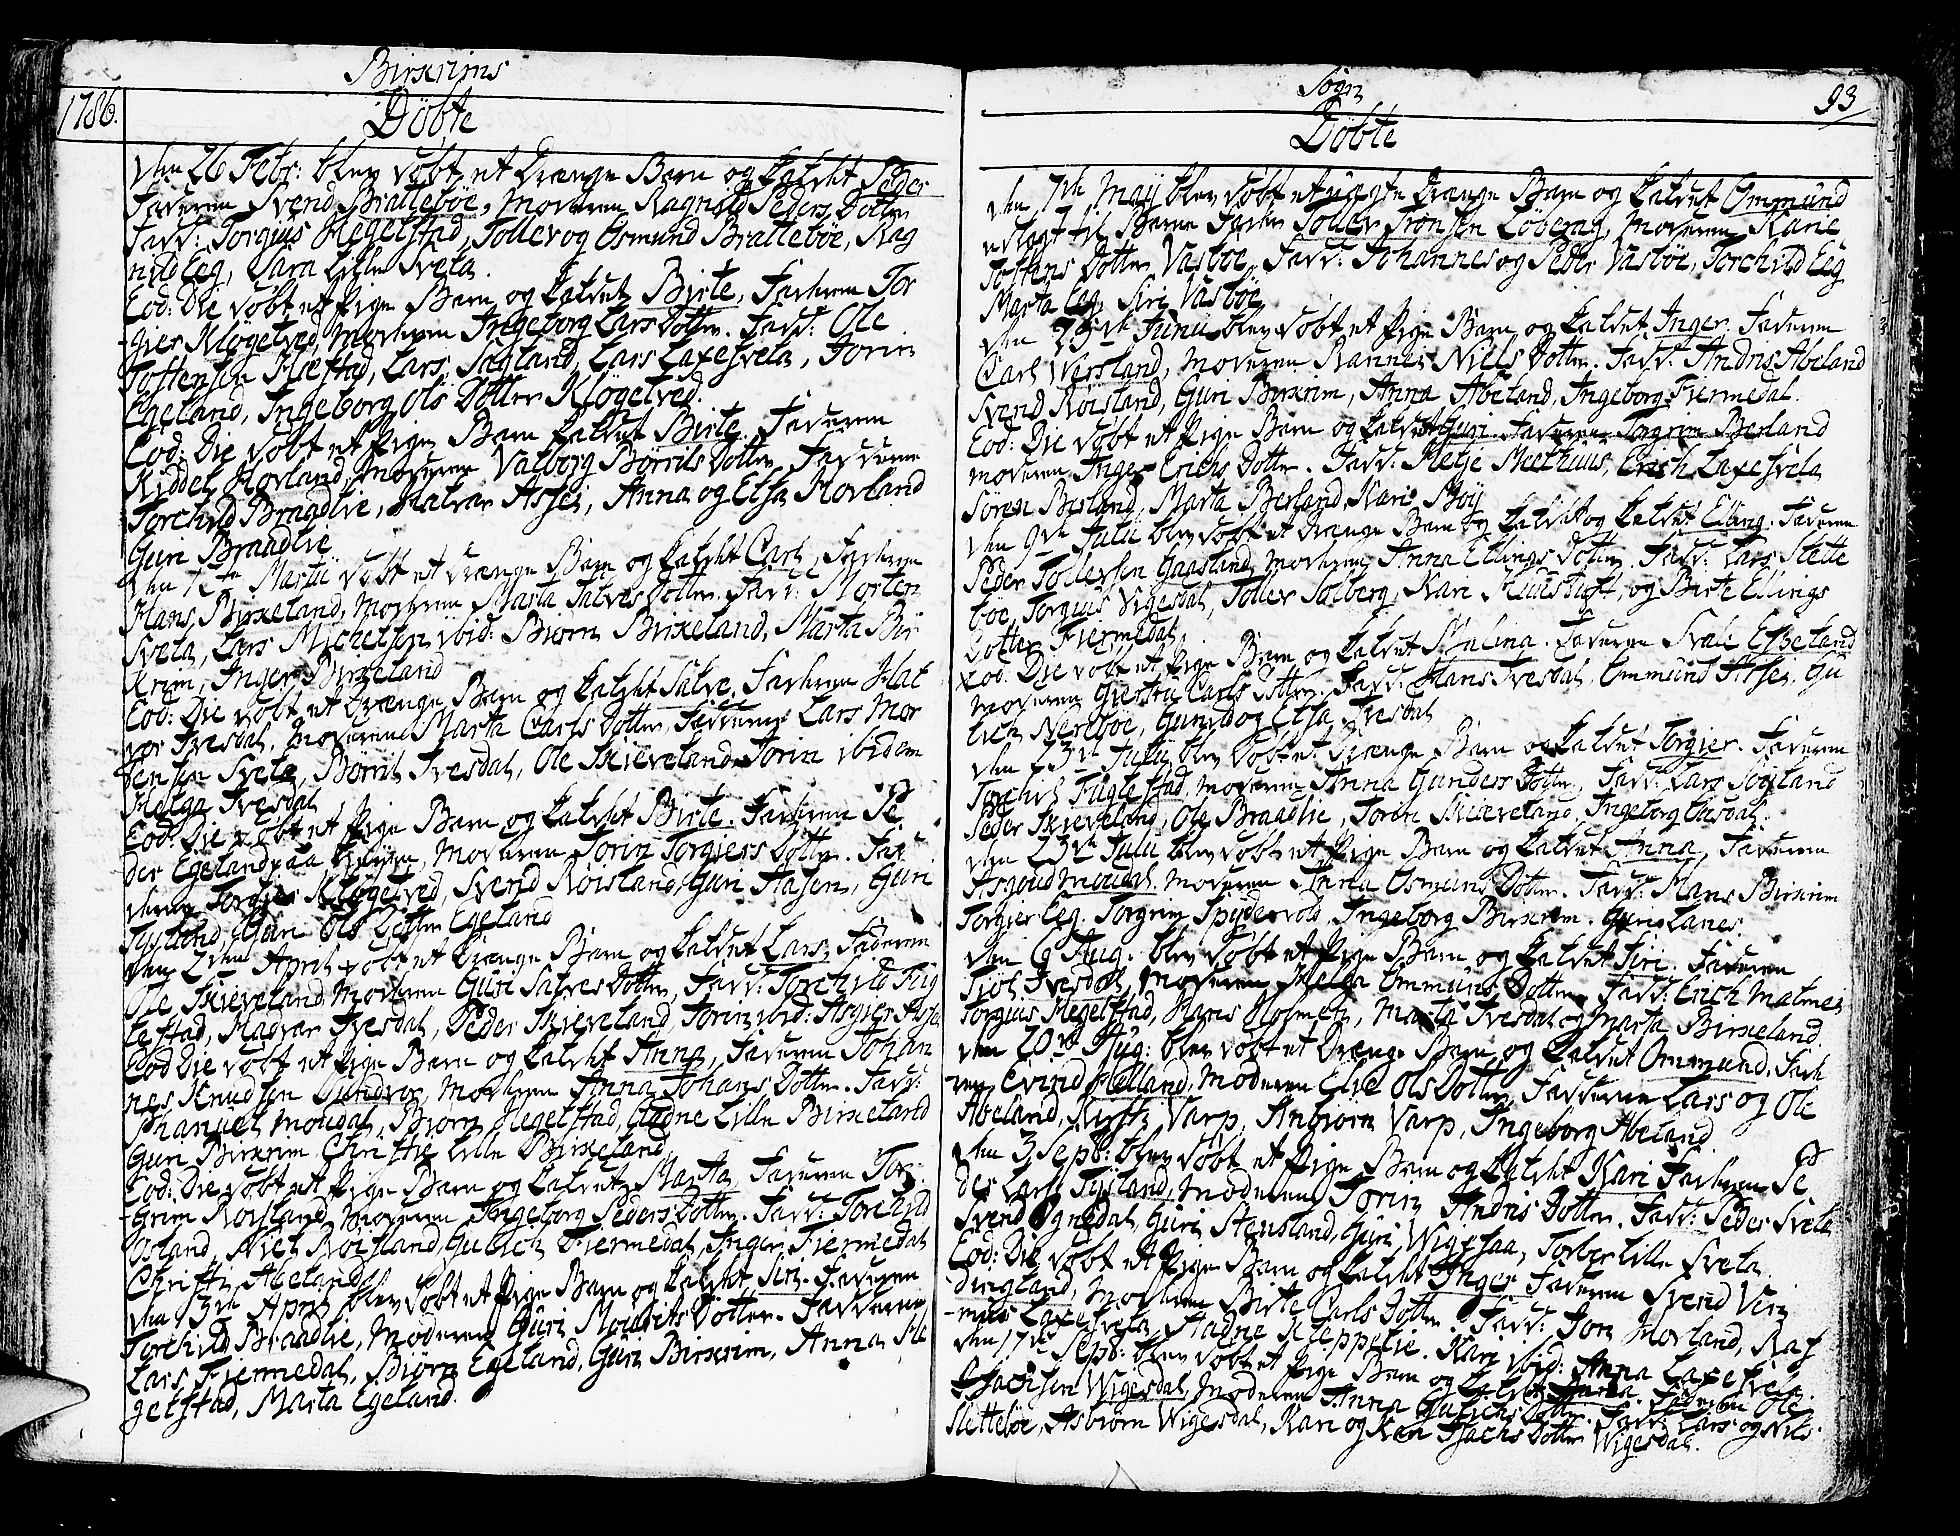 Birxrims
1786.
Döbte
den 26 Febr: blev döbt et Drænge Barn og kaldt Peder
Faderen Svend Bratteböe, Moderen Ragnild Peders Dotter
Fadd: Torgius Hegelstad, Tollev og Osmund Bratteböe, Rag
nild Eeg, Sara Lille Svela.
Eod: Die döbt et Pige Barn og kaldet Birte, Faderen Tor
gier Kløgetved, Moderen Ingeborg Lars Dotter. Fadd: Ole
Tostensen Hæstad, Lars Sagland, Lars Laxesvela, Torin
Egeland, Ingeborg Ols Dotter Klogetved.
Eod: Die döbt et Pige Barn kaldet Birte. Faderen
Kiddel Hovland, Moderen Valborg Börrils Dotter, Fadderne
Torchild Braadlie, Halvor Assei, Anna og Elsa Hovland
Guri Braadlie
den Martii döbt et Drænge Barn og kaldt Carl, Faderen
Hans Birxeland, Moderen Marta Salves Dotter. Fadd: Morten
Svela, Lars Michelsen ibid: Biorn Birxeland, Marta Bir
krem, Inger Birxeland
Eod: Die döbt et Drænge Barn og kaldt Salve. Faderen Hal
vor Ivesdal. Moderen Marta Carls Dotter, Fadderne Lars Mor
tensen Svela, Börril Ivesdal, Ole Skieveland Torin ibidem
Helga Ivesdal
Eod: Die döbt et Pige Barn og kaldt Birte. Faderen Pe
der Egeland paa Moderen Torin Torgiers Dotter. Fad
derne Torgier Kløgetved, Svend Roisland, Guri Aasen, Guri
Guri Ols Dotter Egeland
den 2den April döbt et Drænge Barn og kaldet Lars, Faderen
Ole Skieveland Moderen Guri Salves Dotter, Fadd: Torchild Fug
lestad, Magvar Ivesdal, Peder Skieveland, Torin ibid: Asgier Assei
Eod Die döbt et Pige Barn og kaldt Anna, Faderen Johan
nes Knudsen Moderen Anna Johans Dotter. Fadd:
Moudal, Biorn Hegelstad, Lille Birxeland
Guri Birxrim Christie Lille Birxeland
Eod: Die döbt et Pige Barn og kaldet Marta, Faderen Tor
grim Roisland, Moderen Ingeborg Peders Dotter. Fadd: Torchild
Osland, Niel Roisland, Gulich Fiermedal, Inger Fiermedal
Christi Abeland
den 13de April blev döbt et Pige Barn og kaldt Siri. Faderen
Torchild Braadlie, Moderen Guri Mourits Dotter. Fadderne
Lars Fiermedal, Biørn Egeland, Guri Birxrim, Anna He
gelstad, Marta Egeland.
Sogn
93
Döbte
den 7de Maij blev döbt et uægte Drænge Barn og kaldet Ommund
udlagt til Barne Fader Tollev Tronsen Löberag, Moderen Karie
Tostens Dotter Vasböe, Fadd: Johannes og Peder Vasböe, Torchild Eeg
Marta Eeg, Siri Vasböe
den 29de Junii blev döbt et Pige Barn og kaldet Inger. Faderen
Carl Versland, Moderen Rannei Niels Dotter. Fadd: Andris Abeland
Svend Roisland, Guri Birxrim, Anna Abeland, Ingeborg Fiermedal.
Eod: Die döbt et Pige Barn og kaldet Guri. Faderen Torgrim Berland
Moderen Inger Erichs Dotter. Fadd: Metje Meethuus, Erich Laxesvela
Sören Berland, Marta Berland, Kari Böy
den 9de Julii blev döbt et Drænge Barn og kaldt og kaldet Elling. Faderen
Peder Tollevsen Gaasland, Moderen Anna Ellings Dotter. Fadd: Lars Slette
böe, Torgius Vigesdal, Tollev Solberg, Kari og Birte Ellings
Dotter Fiermedal.
Eod: Die döbt et Pige Barn og kaldet Malina. Faderen Svale Espeland
Moderen Giertru Carls Dotter. Fadd: Hans Ivesdal, Ommund Assei, Gu
lich Nereböe, Gunild og Elsa Ivesdal
den 23de Julii blev döbt et Drænge Barn og kaldet Torgier. Faderen
Torchil Fuglestad, Moderen Anna Gunders Dotter, Fadd: Lars Sogland
Peder Skieveland, Ole Braadlie, Toren Skieveland, Ingeborg
den 23de Julii blev döbt et Pige Barn og kaldet Anna, Faderen
Asgoud Moudal. Moderen Anna Osmuns Dotter. Fadd: Hans Birxrim
Torgier Eeg, Torgrim Spydevold, Ingeborg Birxrem. Guri Lanes.
den 6 Aug: blev döbt et Pige Barn og kaldet Siri. Faderen
Siöl Ivesdal, Moderen Helga Ommuns Dotter. Fadd: Erich Malmei
Torgius Hegelstad, Hans Holmen, Marta Ivesdal og Marta Birxeland.
den 20de Aug: blev döbt et Drænge Barn og kaldet Ommund, Fade
ren Eivind Helland, Moderen Elie Ols Dotter, Fadderne Lars og Ole
Abeland, Kirsti Varp, Anbiorn Varp, Ingeborg Abeland
den 3 Sepb: blev döbt et Pige Barn og kaldt Kari Faderen Pe
der Lars Tysland, Moderen Torin Andris Dotter. Fadd: Peder Svela
Svend Ognedal, Guri Stensland, Guri Wigesaa, Torber Lille Svela
Eod: Die döbt et Pige Barn og kaldt Inger Faderen Svend Vin
dingland, Moderen Birte Carls Dotter. Fadd: Jon Hovland, Ras
mus Laxesvela, Aadne Kleppelie. Kari ibid: Anna Laxesvela.
den 17de Sepb: blev döbt et Pige Barn og kaldt Anna. Faderen Ole
Isachsen Wigesdal, Moderen Anna Gulichs Dotter. Fadd: Lars og Nils
Sletteböe, Asbiörn Wigesdal, Kari og Kari Isachs Dotter Wigesdal.